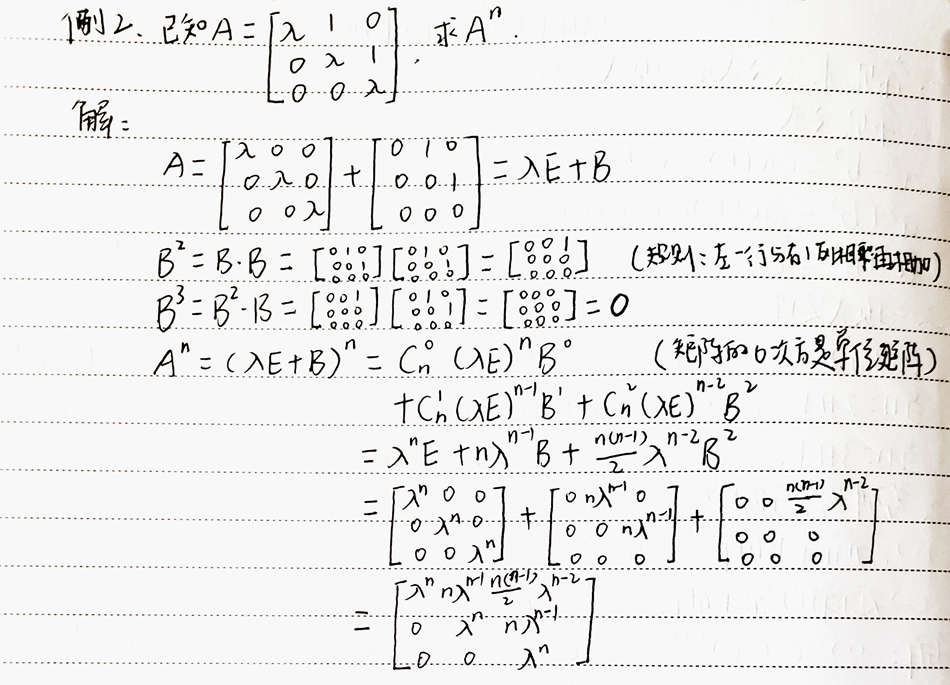 例2. 已知A = [λ 1 0; 0 λ 1; 0 0 λ], 求Aⁿ.
解:
A = [λ 0 0; 0 λ 0; 0 0 λ] + [0 1 0; 0 0 1; 0 0 0] = λE + B
B² = B·B = [0 1 0; 0 0 1; 0 0 0][0 1 0; 0 0 1; 0 0 0] = [0 0 1; 0 0 0; 0 0 0] (规则: 左一行与右1列相乘再相加)
B³ = B²·B = [0 0 1; 0 0 0; 0 0 0][0 1 0; 0 0 1; 0 0 0] = [0 0 0; 0 0 0; 0 0 0] = 0
Aⁿ = (λE + B)ⁿ = Cₙ⁰ (λE)ⁿ B⁰ (矩阵的0次方是单位矩阵)
+ Cₙ¹ (λE)ⁿ⁻¹ B¹ + Cₙ² (λE)ⁿ⁻² B²
= λⁿE + nλⁿ⁻¹B + n(n-1)/2 λⁿ⁻² B²
= [λⁿ 0 0; 0 λⁿ 0; 0 0 λⁿ] + [0 nλⁿ⁻¹ 0; 0 0 nλⁿ⁻¹; 0 0 0] + [0 0 n(n-1)/2 λⁿ⁻²; 0 0 0; 0 0 0]
= [λⁿ nλⁿ⁻¹ n(n-1)/2 λⁿ⁻²; 0 λⁿ nλⁿ⁻¹; 0 0 λⁿ]